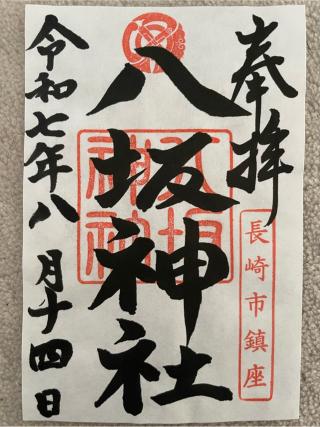 奉拝
長崎市鎮座
八坂神社
八坂神社
令和七年八月十四日